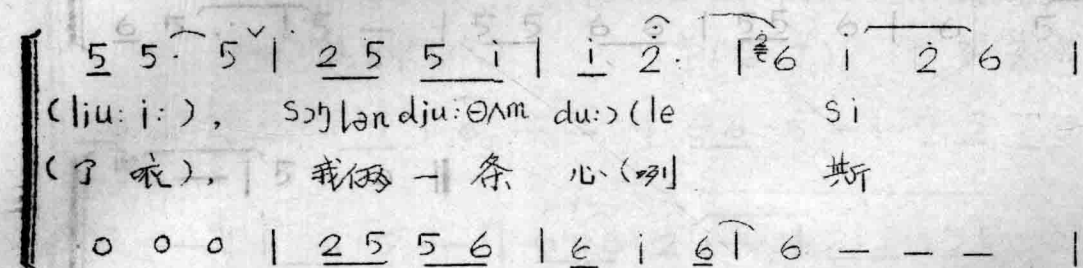 5 5· 5 ∨ | 2 5 5 i | i 2̇· | 6 i 2̇ 6 |
(liu: i:), sɔŋ lən dju: θʌm du:) (le si
(了 哝), 我俩 一 条 心 (咧 斯
0 0 0 | 2 5 5 6 | 6 i 6 | 6 — — — |